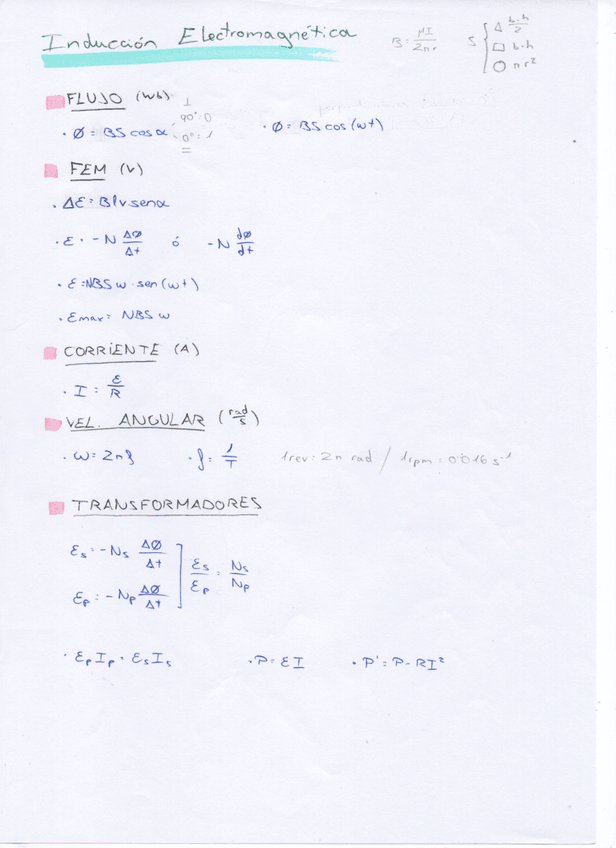 Inducción Electromagnética
B = μI / 2πr
S { △ b·h/2
□ b·h
○ πr²
FLUJO (Wb)
· Ø = BS cos α
⊥
90°: 0
0° = 1
· Ø = BS cos (wt)
FEM (V)
· ΔƐ = Blv sen α
· Ɛ = -N ΔØ/Δt ó -N dØ/dt
· Ɛ = NBS w · sen (wt)
· Ɛmax = NBS w
CORRIENTE (A)
· I = Ɛ/R
VEL. ANGULAR (rad/s)
· ω = 2πf · f = 1/T 1rev = 2π rad / 1rpm = 0'016 s⁻¹
TRANSFORMADORES
Ɛs = -Ns ΔØ/Δt
Ɛp = -Np ΔØ/Δt ] Ɛs/Ɛp = Ns/Np
· ƐpIp = ƐsIs · P = ƐI · P' = P - RI²